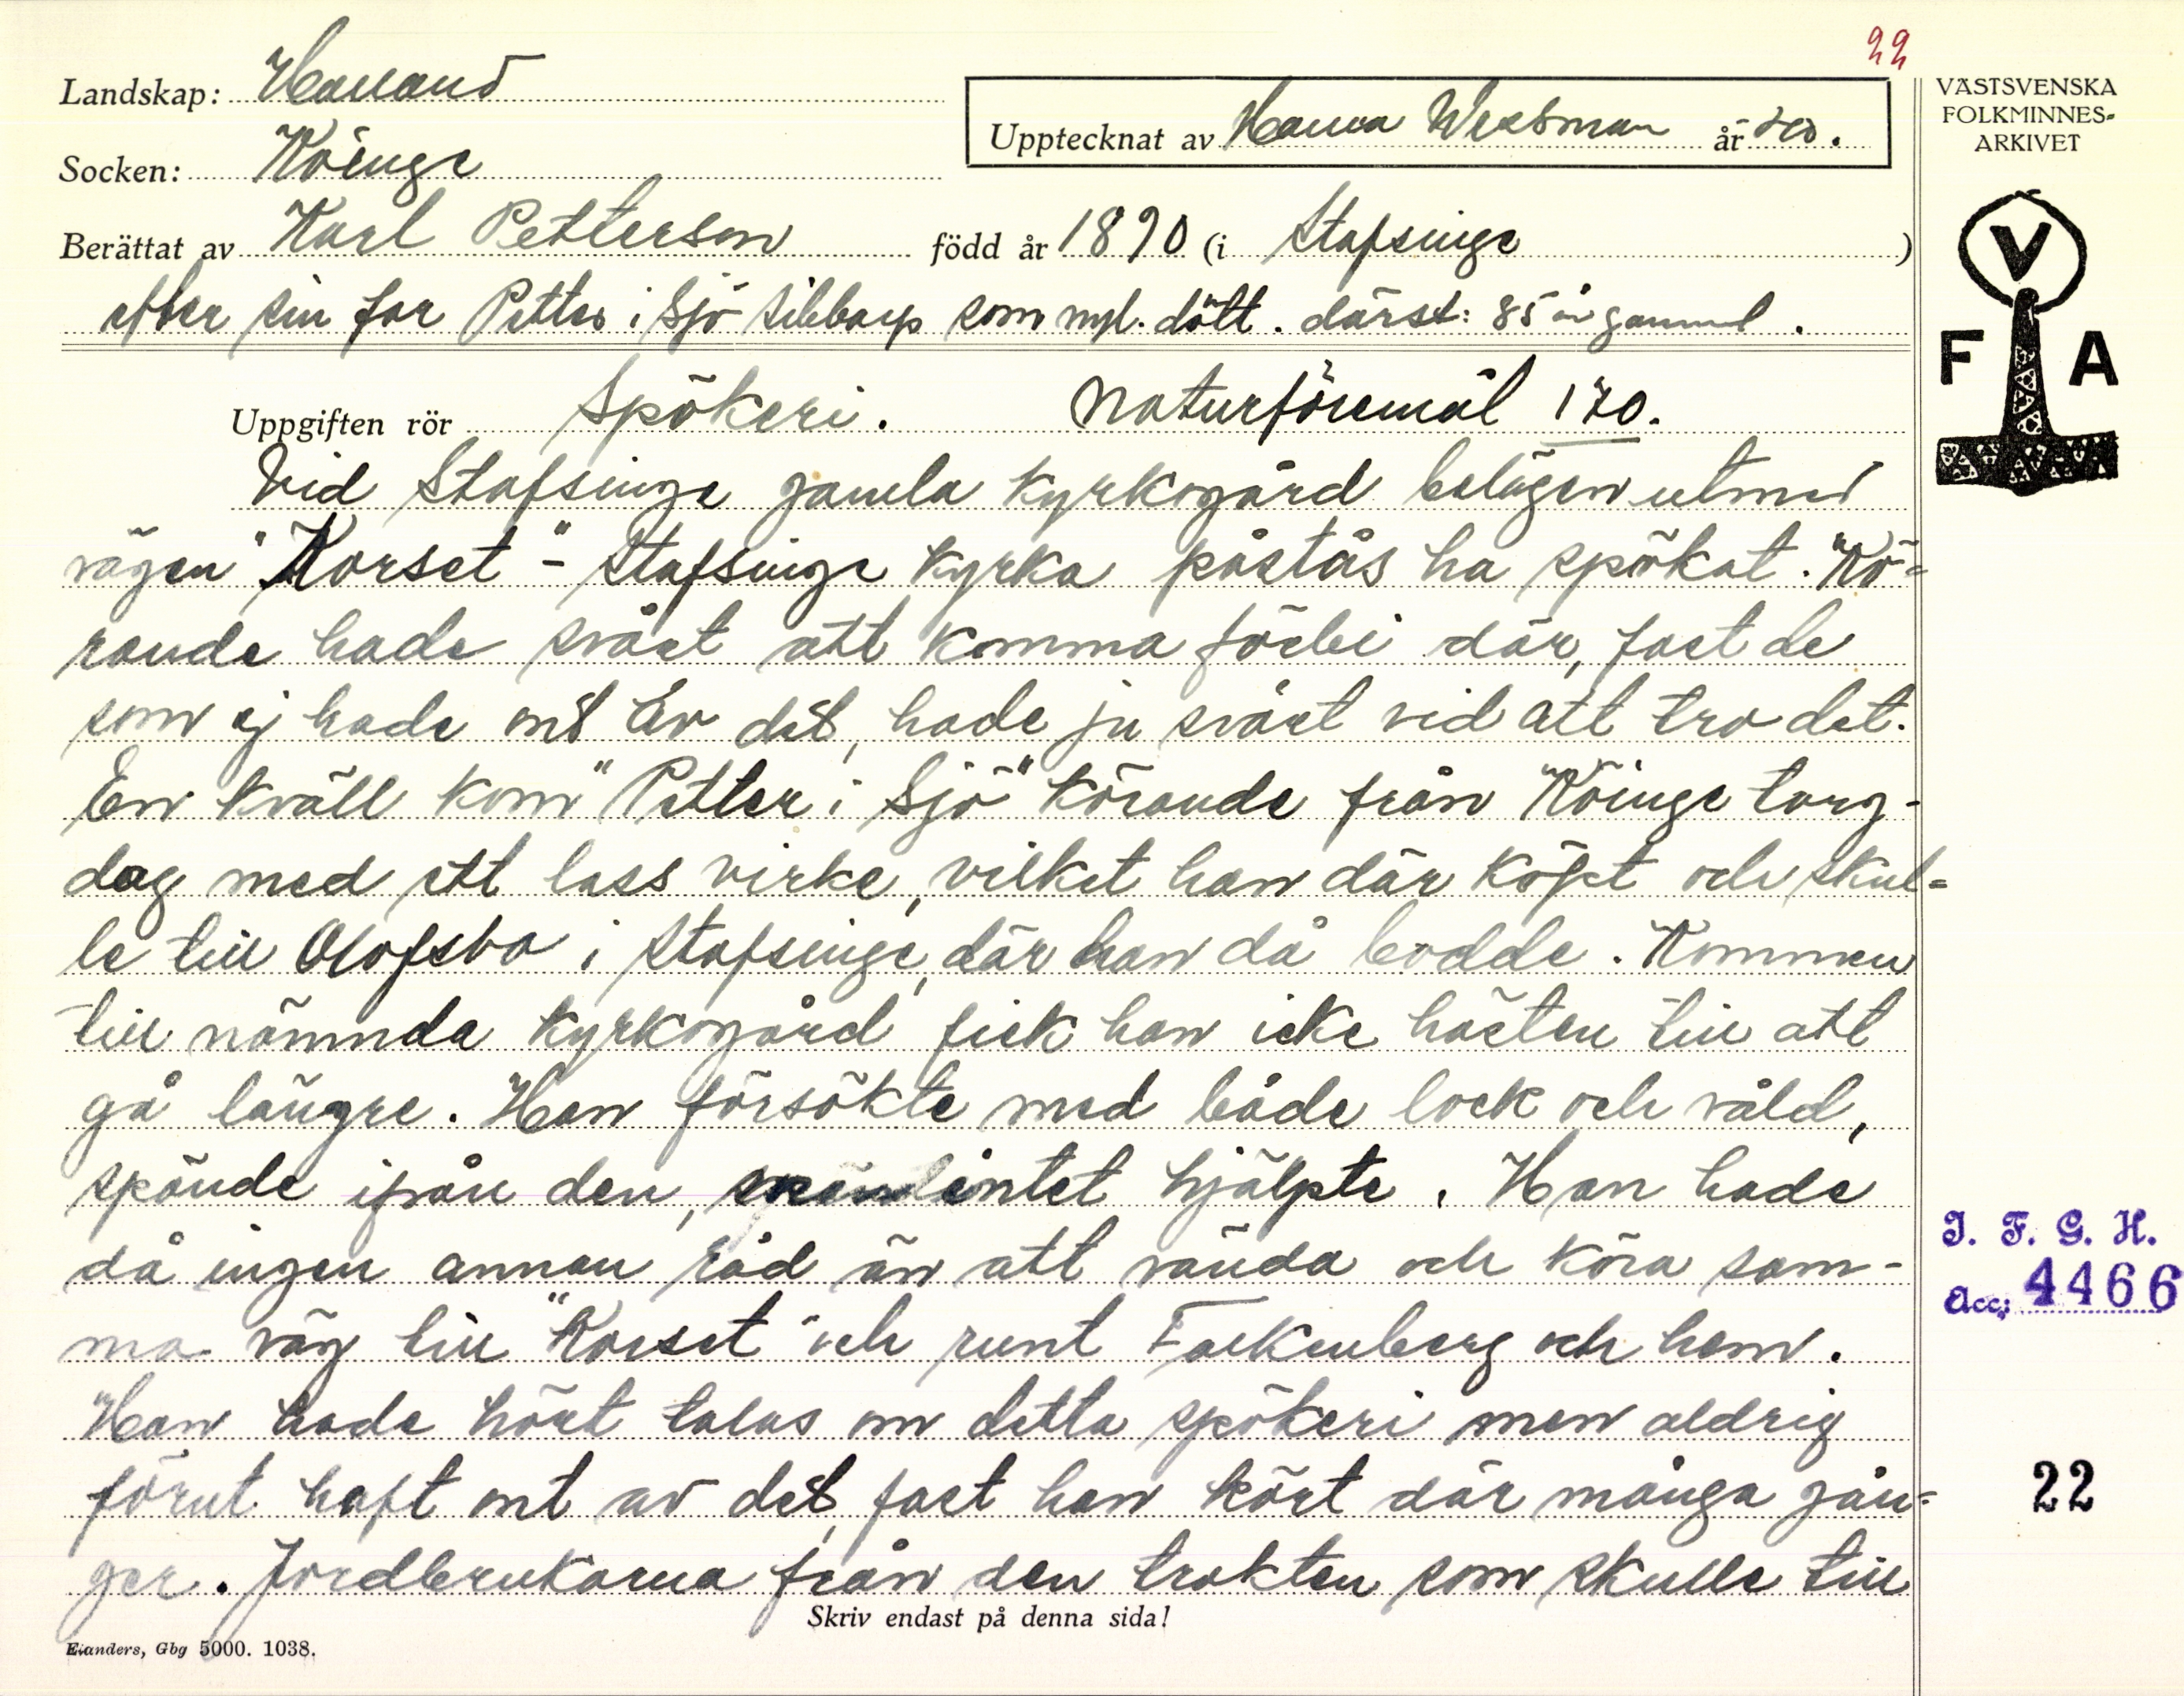 22
Landskap: Halland
VÄSTSVENSKA
FOLKMINNES-
ARKIVET
Upptecknat av Hanna Westman år
Socken: Köinge
Berättat av Karl Petterson född år 1890 (i Stafsinge)
efter sin far Petter i Sjö som nyl. dött. därst: 85 år gammal.
V
F A
Uppgiften rör Spökeri. Naturföremål 170.
Vid Stafsinge gamla kyrkogård belägen utmed
vägen "Korset" - Stafsinge kyrka påstås ha spökat. Kö-
rande hade svårt att komma förbi där, fast de
som ej hade mt av det, hade ju svårt vid att tro det.
En kväll kom "Petter i Sjö" körande från Köinge torg-
dag med ett lass virke, vilket han där köpt och skul-
le till Olofsbo i Stafsinge, där han då bodde. Kommen
till nämnda kyrkogård fick han icke hästen till att
gå längre. Han försökte med både lock och våld,
spände ifrån den, intet hjälpte. Han hade
då ingen annan råd än att vända och köra sam-
ma väg till "Korset" och runt Falkenberg och hem.
Han hade hört talas om detta spökeri men aldrig
förut haft mt av det, fast han kört där många gån-
ger. Jordbrukarna från den trakten som skulle till
I. F. G. H.
Acc: 4466
22
Skriv endast på denna sida!
Elanders, Gbg 5000. 1038.